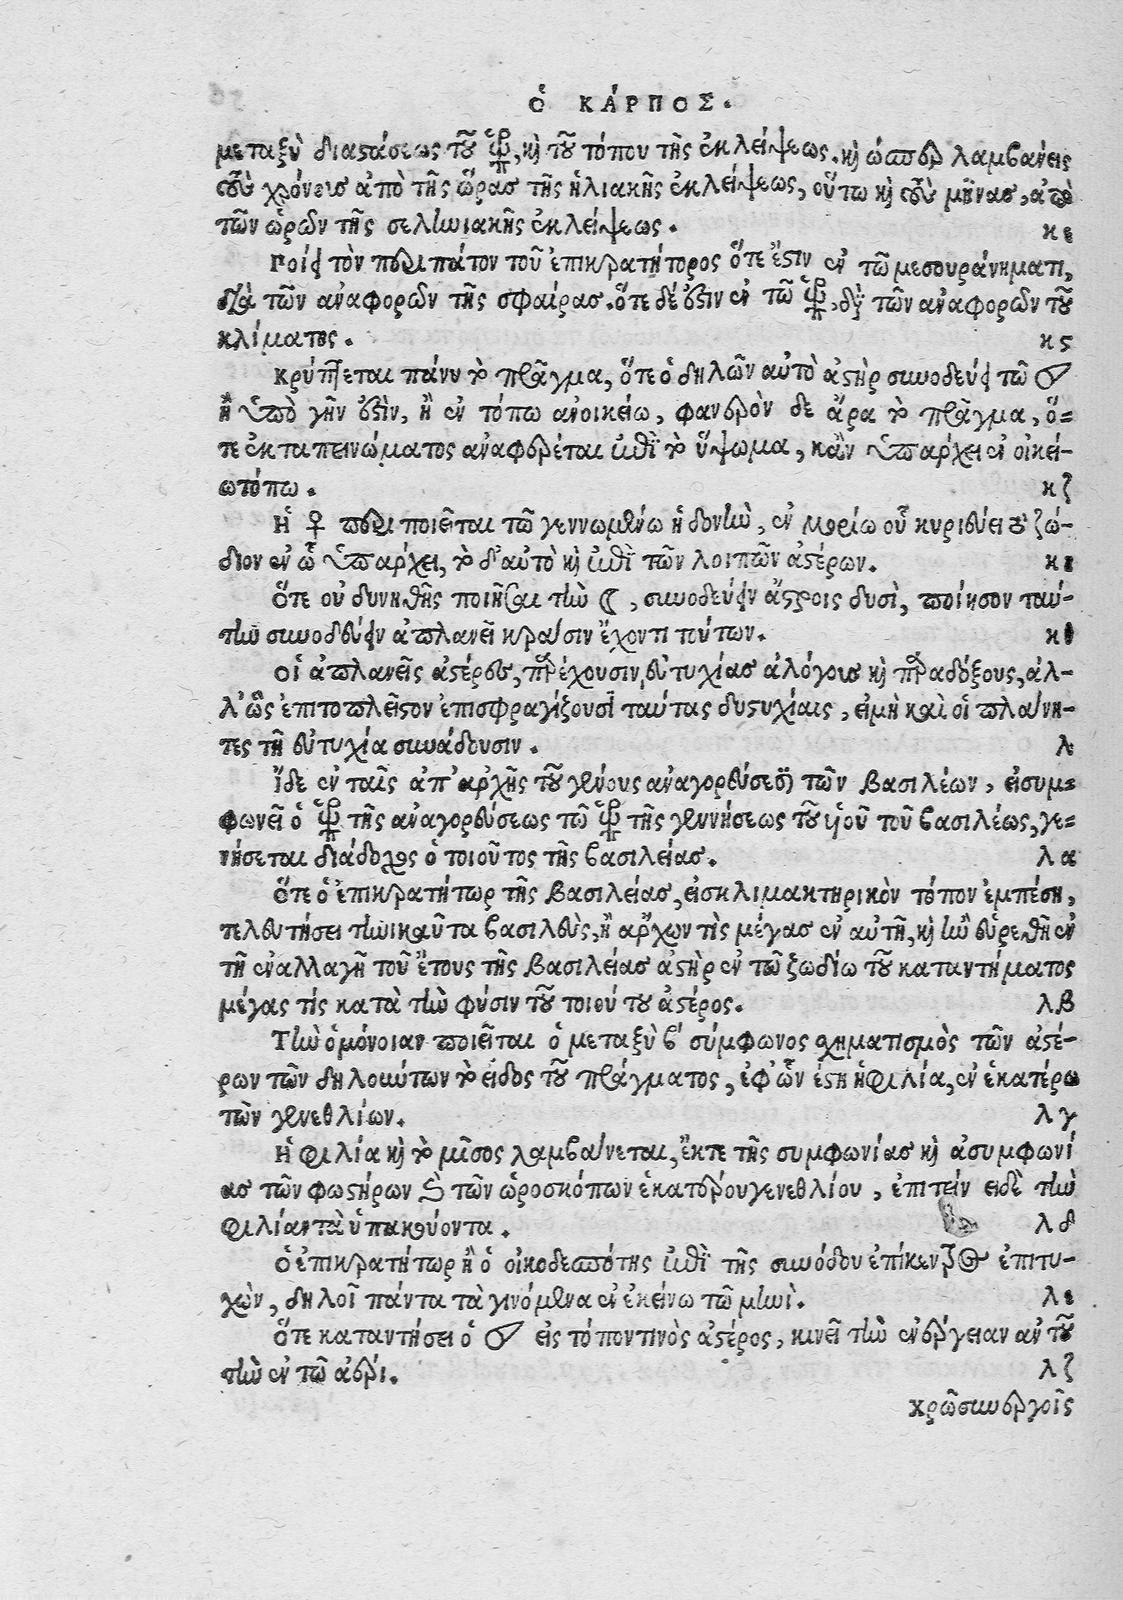 Ὁ ΚΆΡΠΟΣ.
μεταξὺ διαστάσεως τοῦ , καὶ τοῦ τόπου τῆς ἐκλείψεως. καὶ ὥσπερ λαμβάνεις
τοὺς χρόνους ἀπὸ τῆς ὥρας τῆς ἡλιακῆς ἐκλείψεως, οὕτω καὶ τοὺς μῆνας, ἀπὸ
τῶν ὡρῶν τῆς σεληνιακῆς ἐκλείψεως. κε
Ποίει τὸν περιπάτον τοῦ ἐπικρατήτορος ὅτε ἔστιν ἐν τῶ μεσουράνηματι,
διὰ τῶν ἀναφορῶν τῆς σφαίρας. ὅτε δέ ἐστιν ἐν τῶ , διὰ τῶν ἀναφορῶν τοῦ
κλίματος. κς
Κρύπτεται πάνυ τὸ πρᾶγμα, ὅτε ὁ δηλῶν αὐτὸ ἀστὴρ συνοδεύει τῶ ♂
ἢ ὑπὸ γῆν ἐστὶν, ἢ ἐν τόπω ἀνοικείω, φανερὸν δε ἄρα τὸ πρᾶγμα, ὅ=
τε ἐκ ταπεινώματος ἀναφερέται ἐπὶ τὸ ὕψωμα, κἂν ὑπάρχει ἐν οἰκεί-
ω τόπω. κζ
Ἡ ♀ περιποιεῖται τῶ γεννωμένω ἡδονὴν, ἐν μορίω οὗ κυριεύει τὸ ζώ-
διον ἐν ᾧ ὑπάρχει, τὸ δ' αὐτὸ καὶ ἐπὶ τῶν λοιπῶν ἀστέρων. κε
Ὅτε οὐ δυνηθῆς ποιῆσαι τὴν ☾, συνοδεύειν ἄστροις δυσὶ, ποίησον ταύ-
την συνοδεύειν ἀπλανεῖ κρᾶσιν ἔχοντι τούτων.
Οἱ ἀπλανεῖς ἀστέρες, παρέχουσιν εὐτυχίας ἀλόγους καὶ παραδόξους, ἀλ-
λ' ὡς ἐπιτοπλεῖστον ἐπισφραγίζουσι ταύτας δυστυχίαις, εἰμὴ καὶ οἱ πλάνη-
τες τῆ εὐτυχία συνάδουσιν. λ
Ἴδε ἐν ταῖς ἀπ' ἀρχῆς τοῦ γένους ἀναγορεύσεσι τῶν βασιλέων, εἰ συμ=
φωνεῖ ὁ τῆς ἀναγορεύσεως τῶ τῆς γεννήσεως τοῦ υἱοῦ τοῦ βασιλέως, γε=
νήσεται διάδοχος ὁ τοιοῦτος τῆς βασιλείας. λα
Ὅτε ὁ ἐπικρατήτωρ τῆς βασιλείας, εἰς κλιμακτηρικὸν τόπον ἐμπέση,
τελευτήσει τηνικαῦτα βασιλεὺς, ἢ ἄρχων τὶς μέγας ἐν αὐτῆ, καὶ ἢν εὑρεθῆ ἐν
τῆ ἐναλλαγῆ τοῦ ἔτους τῆς βασιλείας ἀστὴρ ἐν τῶ ζωδίω τοῦ καταντήματος
μέγας τίς κατὰ τὴν φύσιν τοῦ τοιούτου ἀστέρος. λβ
Τὴν ὁμόνοιαν ποιεῖται ὁ μεταξὺ σύμφωνος σχηματισμὸς τῶν ἀστέ-
ρων τῶν δηλούντων τὸ εἶδος τοῦ πράγματος, ἐφ' ὧν ἐστι ἡ φιλία, ἐν ἑκατέρω
τῶν γενεθλίων. λγ
Ἡ φιλία καὶ τὸ μῖσος λαμβάνεται, ἔκ τε τῆς συμφωνίας καὶ ἀσυμφωνί
ας τῶν φωστήρων τῶν ὡροσκόπων ἑκατέρου γενεθλίου, ἐπιτείν ειδὲ τὴν
φιλίαν τὰ ὑπακούοντα. λδ
Ὁ ἐπικρατήτωρ ἢ ὁ οἰκοδεσπότης ἐπὶ τῆς συνόδου ἐπίκεντρος ἐπιτυ-
χὼν, δηλοῖ πάντα τὰ γινόμενα ἐν ἐκείνω τῶ μηνὶ. λε
Ὅτε καταντήσει ὁ ♂ εἰς τόπον τινὸς ἀστέρος, κινεῖ τὴν ἐνέργειαν αὐτοῦ
τὴν ἐν τῶ ἀέρι. λζ
χρῶ συνεργοῖς